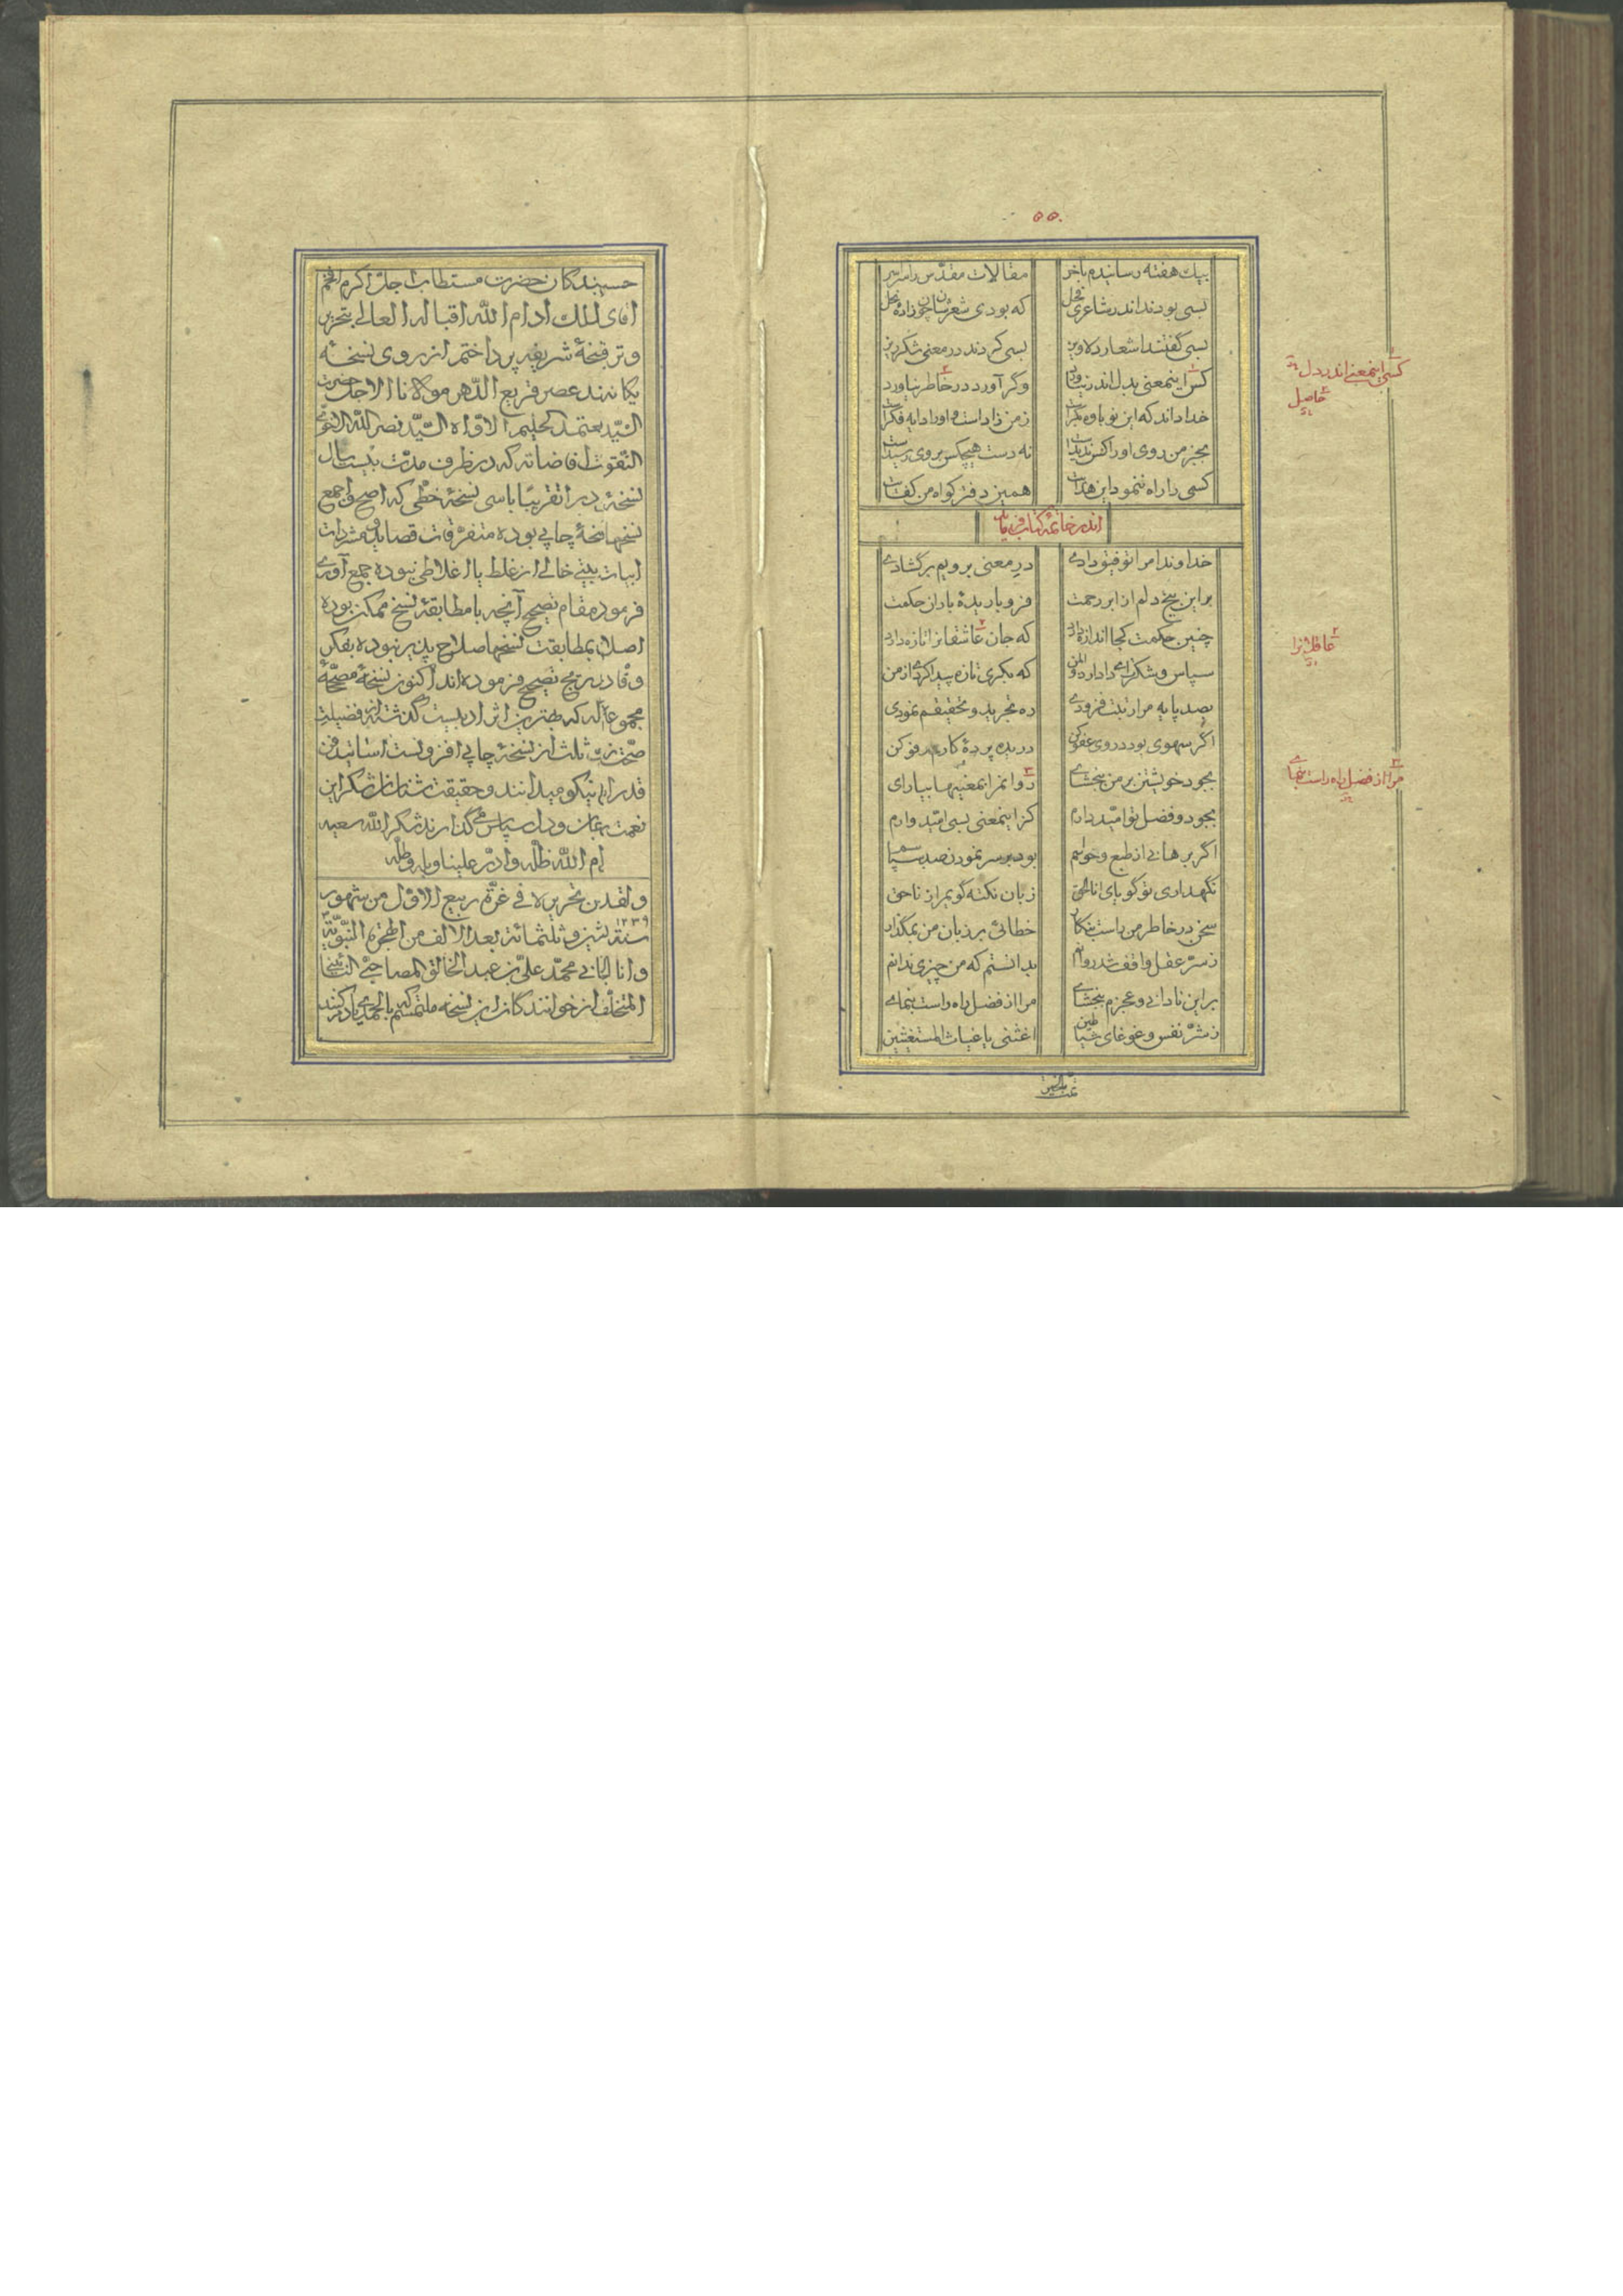 ۵۵۰
بیک هفته رسانیدم بآخر مقالات مقدّس را سراسر
بسی بودند اندر شاعری فحل که بودی شعرشان چون زادهٔ نحل
بسی گفتند اشعار دلاویز بسی کردند در معنی شکرریز
کس اینمعنی بدل اندر نیاورد وگر آورد در خاطر نیاورد
خدا داند که این نوباوه بکر است ز من زاد است و او را دایه فکر است
بجز من روی او را کس ندیداست نه دست هیچکس بر وی رسیداست
کسی را راه ننمود این هدایت همین دفتر گواه من کفایت
اندر خاتمهٔ کتاب
خداوندا مرا توفیق دادی در معنی برویم برگشادی
بر این بیخ دلم از ابر رحمت فرو باریدهٔ باران حکمت
چنین حکمت کجا اندازه دارد که جان عاشقانرا تازه دارد
سپاس و شکرت ای دادار که بکری تازه پیدا کردی از من
بصد پایه مرا رتبت فزودی ره تجرید و تحقیقم نمودی
اگر سهوی بود در وی عفو کن دریده پردهٔ کارم رفو کن
بجود خویشتن بر من ببخشای روانم را بمعنیها بیارای
بجود و فضل تو امّید دارم کز اینمعنی بسی امّیدوارم
اگر برهانی از طبع و حواسم بود بر سر نمودن صد سپاسم
نگهداری تو گویای انا الحق زبان نکته گویم را ز ناحق
سخن در خاطر من راست بنگار خطائی بر زبان من بمگذار
ز سرّ عقل واقف شد روانم بدانستم که من چیزی ندانم
بر این نادانی و عجزم ببخشای مرا از فضل راه راست بنمای
ز شرّ نفس و غوغای شیاطین اغثنی یا غیاث المستغیثین
تمت بالخیر
کسی اینمعنی اندر دل
حاصل
عاقلانرا
مرا از فضل راه راست بنمای
حسب بندگان حضرت مستطاب اجلّ اکرم افخم
آقای الملک ادام اللّه اقباله العالی بتحریر
و ترقیم نسخهٔ شریفه پرداختم از روی نسخهٔ
یگانه عصر قریع الدّهر مولانا الاجل حضرت
السّید نصر اللّه التقوی
افاضاته که در ظرف مدّت بیست سال
نسخهٔ را تقریبًا با سی نسخهٔ خطّی که اصح و اجمع
نسخها نسخهٔ چاپی بوده متفرّقات قصاید و مفردات
ابیات بیتی خالی از غلط یا اغلاطی نبوده جمع آوری
فرموده مقام تصحیح آنچه با مطابقهٔ نسخ ممکن بوده
اصلاح بمطابقت نسخها صلاح پذیر نبوده بفکر
وقّاد تصحیح فرموده‌اند اکنون نسخهٔ مصحّحهٔ
که بهترین اثر ادبیست گذشته از فضیلت
صحّت ثلث از نسخهٔ چاپی افزونست اساتید فن
قدر این نیکو میدانند و حقیقت شناسان شکر این
نعمت بجان و دل سپاس می گذارند شکر اللّه سعیه
ادام اللّه ظلّه و ادرّ علینا وبله و طلّه
و لقد تحریره فی غرّة ربیع الاوّل من شهور
سنة ثلثمائة بعد الالف من الهجرة النّبویّة
و انا الجانی محمّد علیّ بن عبد الخالق المصاحبیّ النّائینی
المتخلّف از خوانندگان این نسخه ملتمسم که بالحمدی یادم کنند